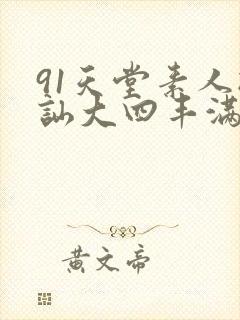 91天堂素人
訕大四丰满
黄文帝